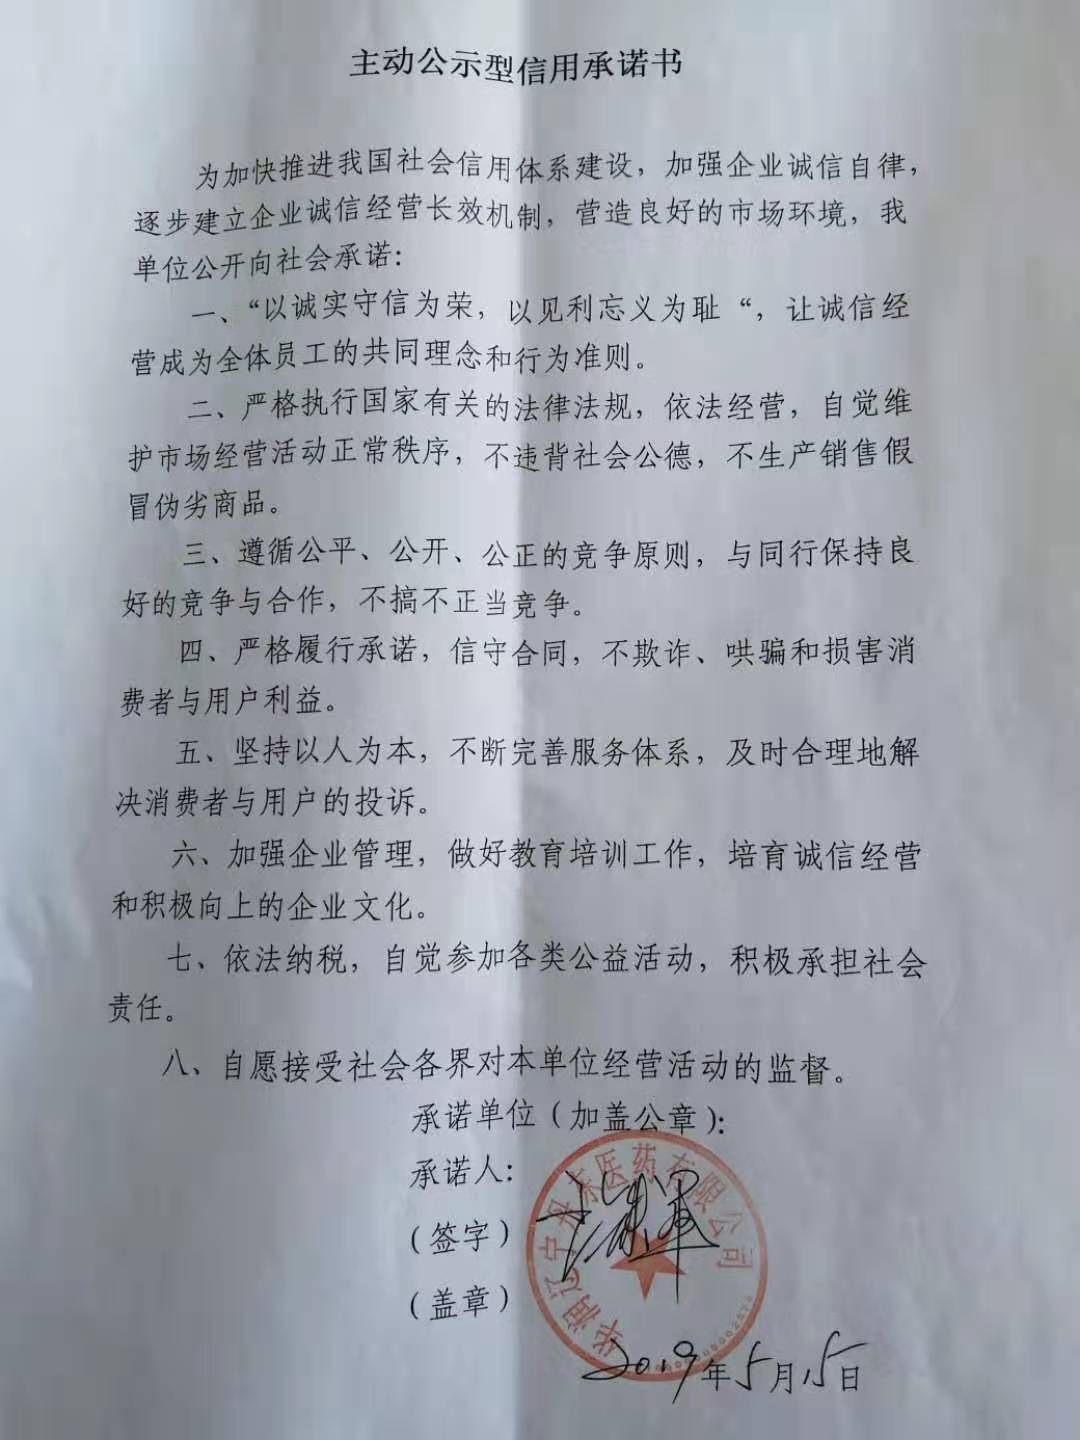 主动公示型信用承诺书
为加快推进我国社会信用体系建设，加强企业诚信自律，
逐步建立企业诚信经营长效机制，营造良好的市场环境，我
单位公开向社会承诺：
一、“以诚实守信为荣，以见利忘义为耻“，让诚信经
营成为全体员工的共同理念和行为准则。
二、严格执行国家有关的法律法规，依法经营，自觉维
护市场经营活动正常秩序，不违背社会公德，不生产销售假
冒伪劣商品。
三、遵循公平、公开、公正的竞争原则，与同行保持良
好的竞争与合作，不搞不正当竞争。
四、严格履行承诺，信守合同，不欺诈、哄骗和损害消
费者与用户利益。
五、坚持以人为本，不断完善服务体系，及时合理地解
决消费者与用户的投诉。
六、加强企业管理，做好教育培训工作，培育诚信经营
和积极向上的企业文化。
七、依法纳税，自觉参加各类公益活动，积极承担社会
责任。
八、自愿接受社会各界对本单位经营活动的监督。
承诺单位（加盖公章）：
承诺人：
（签字）
（盖章）
华润辽宁丹东医药有限公司
2019年5月15日